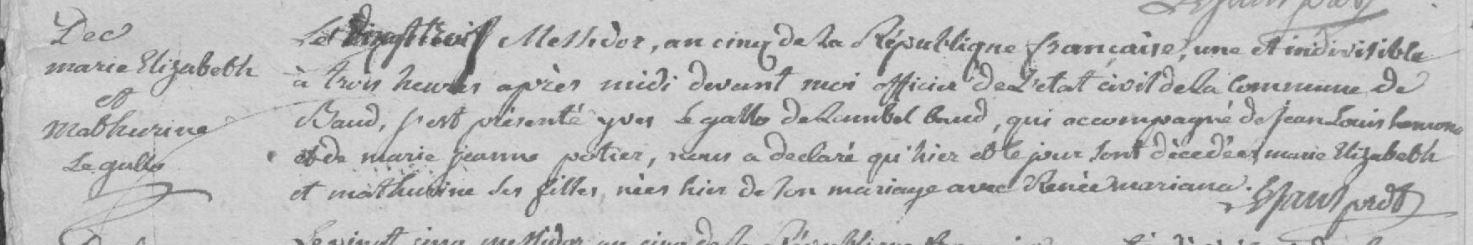 Dec
marie Elizabeth
et
Mathurine
Le gallo
Le vingt trois Messidor, an cinq de la République française, une et indivisible
à trois heures après midi devant moi officier de l'état civil de la Commune de
Baud, s'est présenté yves Le gallo de baud, qui accompagné de Jean Louis
et de marie jeanne potier, nous a declaré qu'hier et le jour sont décedées marie Elizabeth
et mathurine ses filles, nées hier de son mariage avec Renée mariana.
Le vingt cinq messidor an cinq de la République